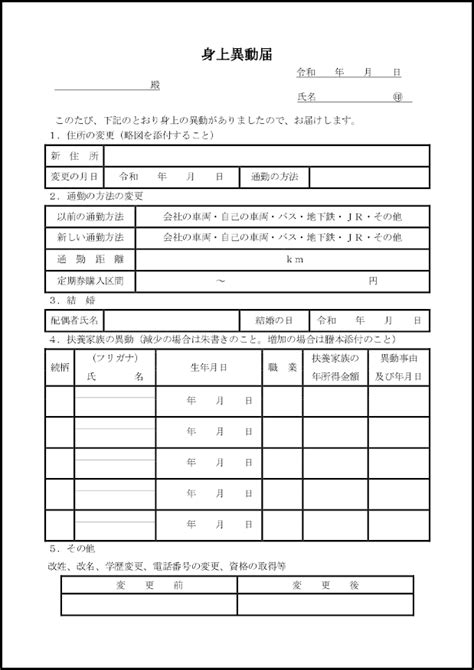 身上異動届
令和　　年　　月　　日
殿
氏名　　　　　　　　㊞
このたび、下記のとおり身上の異動がありましたので、お届けします。
１．住所の変更（略図を添付すること）
新　住　所
変更の月日　令和　　年　　月　　日　通勤の方法
２．通勤の方法の変更
以前の通勤方法　会社の車両・自己の車両・バス・地下鉄・ＪＲ・その他
新しい通勤方法　会社の車両・自己の車両・バス・地下鉄・ＪＲ・その他
通　勤　距　離　ｋｍ
定期券購入区間　～　円
３．結　婚
配偶者氏名　結婚の日　令和　　年　　月　　日
４．扶養家族の異動（減少の場合は朱書きのこと。増加の場合は謄本添付のこと）
続柄　（フリガナ）　氏　　　名　生年月日　職　業　扶養家族の年所得金額　異動事由及び年月日
年　　月　　日
年　　月　　日
年　　月　　日
年　　月　　日
年　　月　　日
５．その他
改姓、改名、学歴変更、電話番号の変更、資格の取得等
変　　更　　前　変　　更　　後